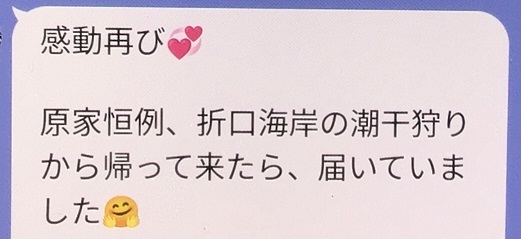 感動再び💞
原家恒例、折口海岸の潮干狩り
から帰って来たら、届いていま
した🤗